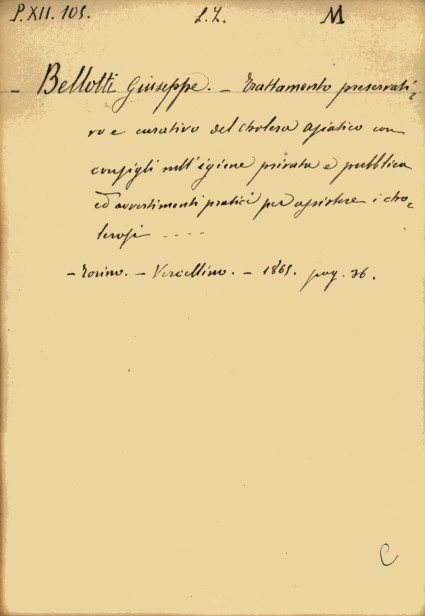 P.XII. 105. L.Z. M
- Bellotti Giuseppe. - Trattamento preservati=
vo e curativo del cholera asiatico con
consigli sull'igiene privata e pubblica
ed avvertimenti pratici per assistere i cho=
lerosi ....
- Torino. - Vercellino. - 1865. pag. 36.
C